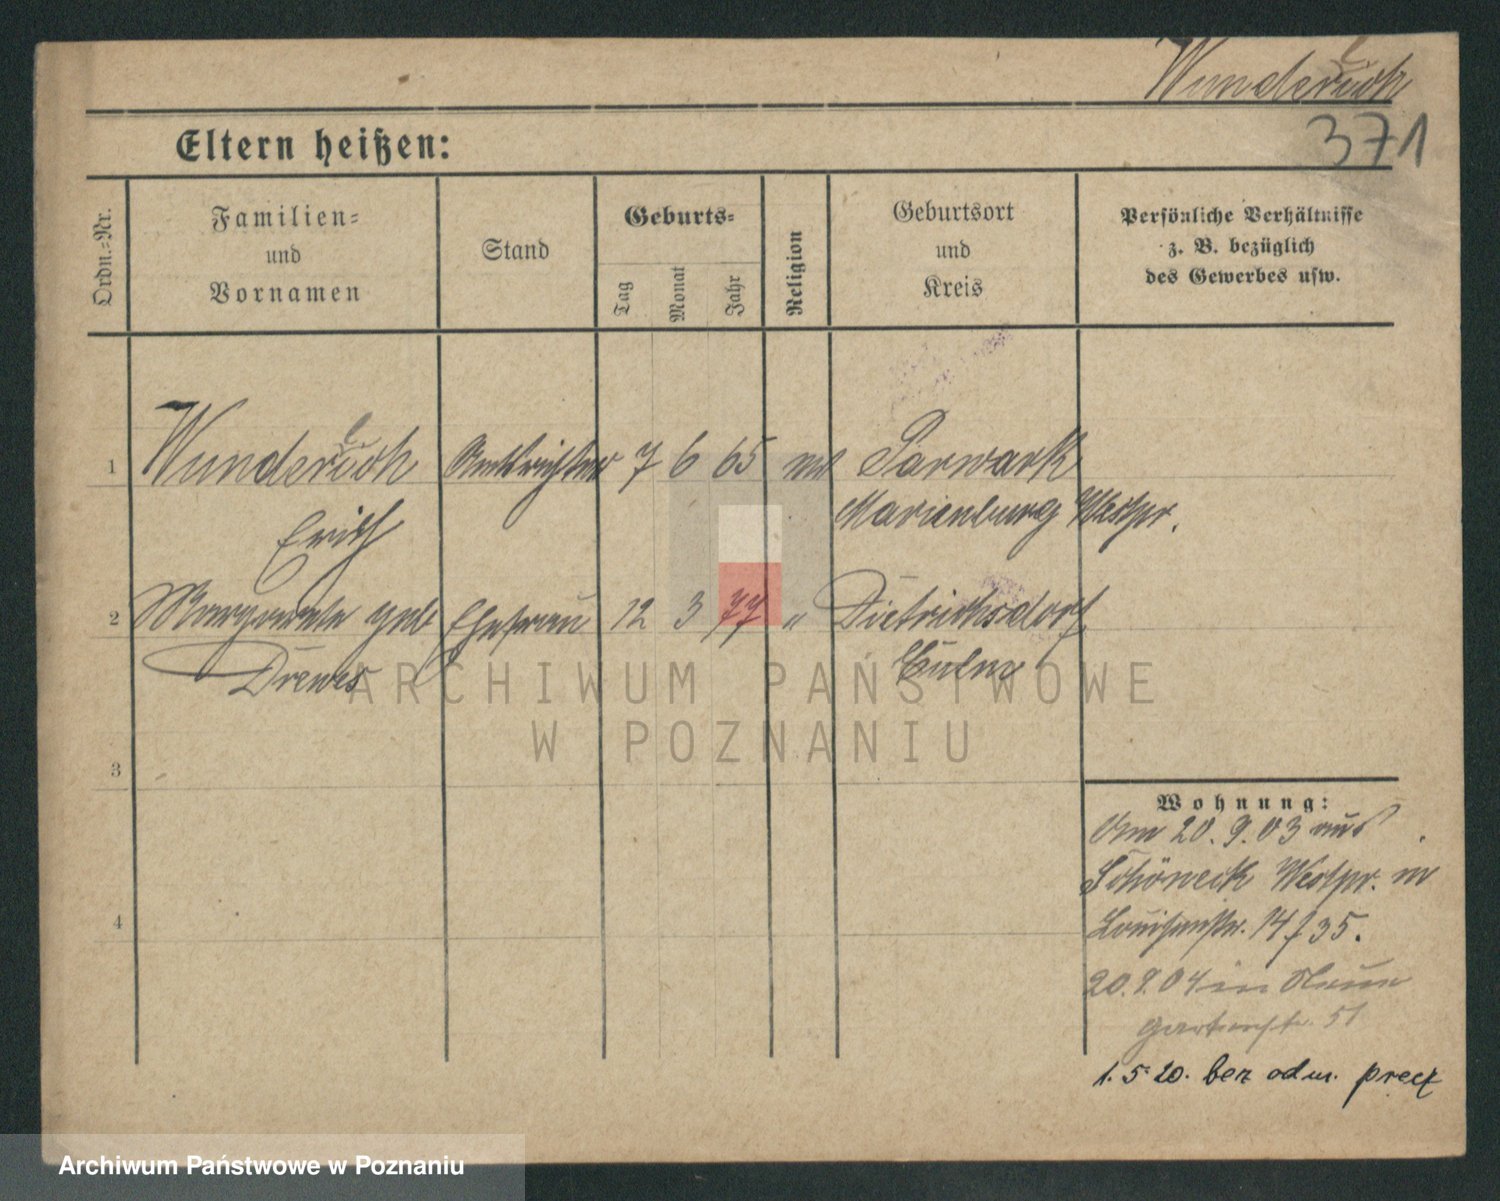 Wunderlich
371
Eltern heißen:
Ordn.=Nr.
Familien=
und
Vornamen
Stand
Geburts=
Tag
Monat
Jahr
Religion
Geburtsort
und
Kreis
Persönliche Verhältnisse
z. B. bezüglich
des Gewerbes usw.
1 Wunderlich Amtsrichter 7 6 65 Parwark
Erich Marienburg Westpr.
2 Margarete geb Ehefrau 12 3 77 " Dietrichsdorf
Drewes Culm
3
4
Wohnung:
Am 20. 9. 03 aus
Schöneck Westpr. in
Louisenstr. 14/35.
20. 9. 04 in
Gartenstr. 51
1. 5 20. bez odm. precz
ARCHIWUM PAŃSTWOWE
W POZNANIU
Archiwum Państwowe w Poznaniu